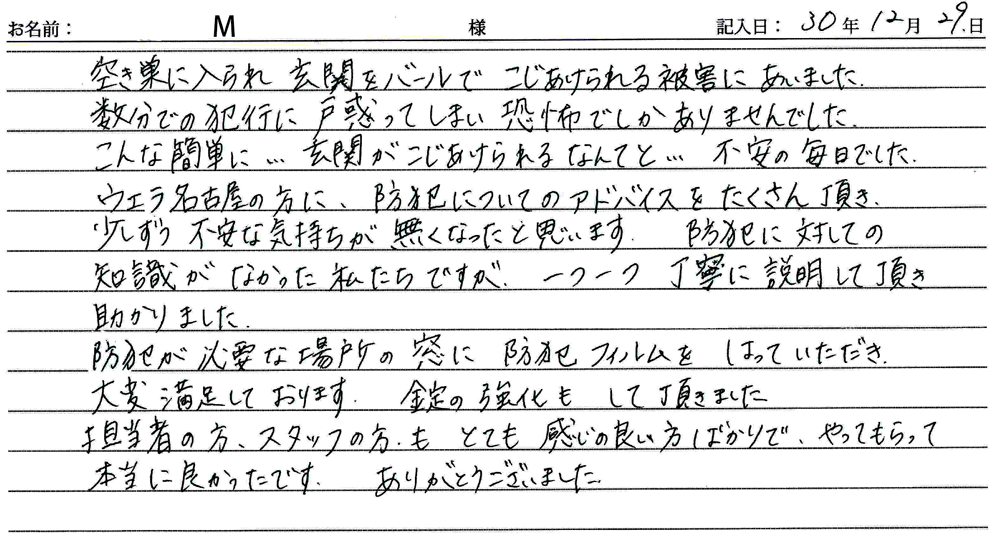 お名前： M 様 記入日： 30年12月29日
空き巣に入られ 玄関をバールで こじあけられる被害に あいました.
数分での犯行に 戸惑ってしまい 恐怖でしかありませんでした.
こんな簡単に… 玄関がこじあけられるなんてと… 不安の毎日でした.
ウェラ名古屋の方に、防犯についてのアドバイスをたくさん頂き.
少しずつ 不安な気持ちが 無くなったと思います. 防犯に対しての
知識が なかった私たちですが. 一つ一つ 丁寧に説明して頂き
助かりました.
防犯が必要な場所の 窓に 防犯フィルムを はっていただき.
大変満足しております. 錠の強化も して頂きました
担当者の方、スタッフの方.も とても 感じの良い方ばかりで、やってもらって
本当に良かったです. ありがとうございました